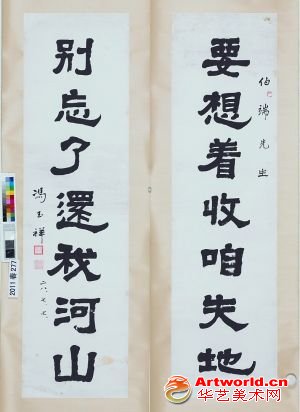 伯瑞先生
要想着收咱失地
别忘了還我河山
馮玉祥
六.七.七.
2011 春 277
Artworld.cn
华艺美术网